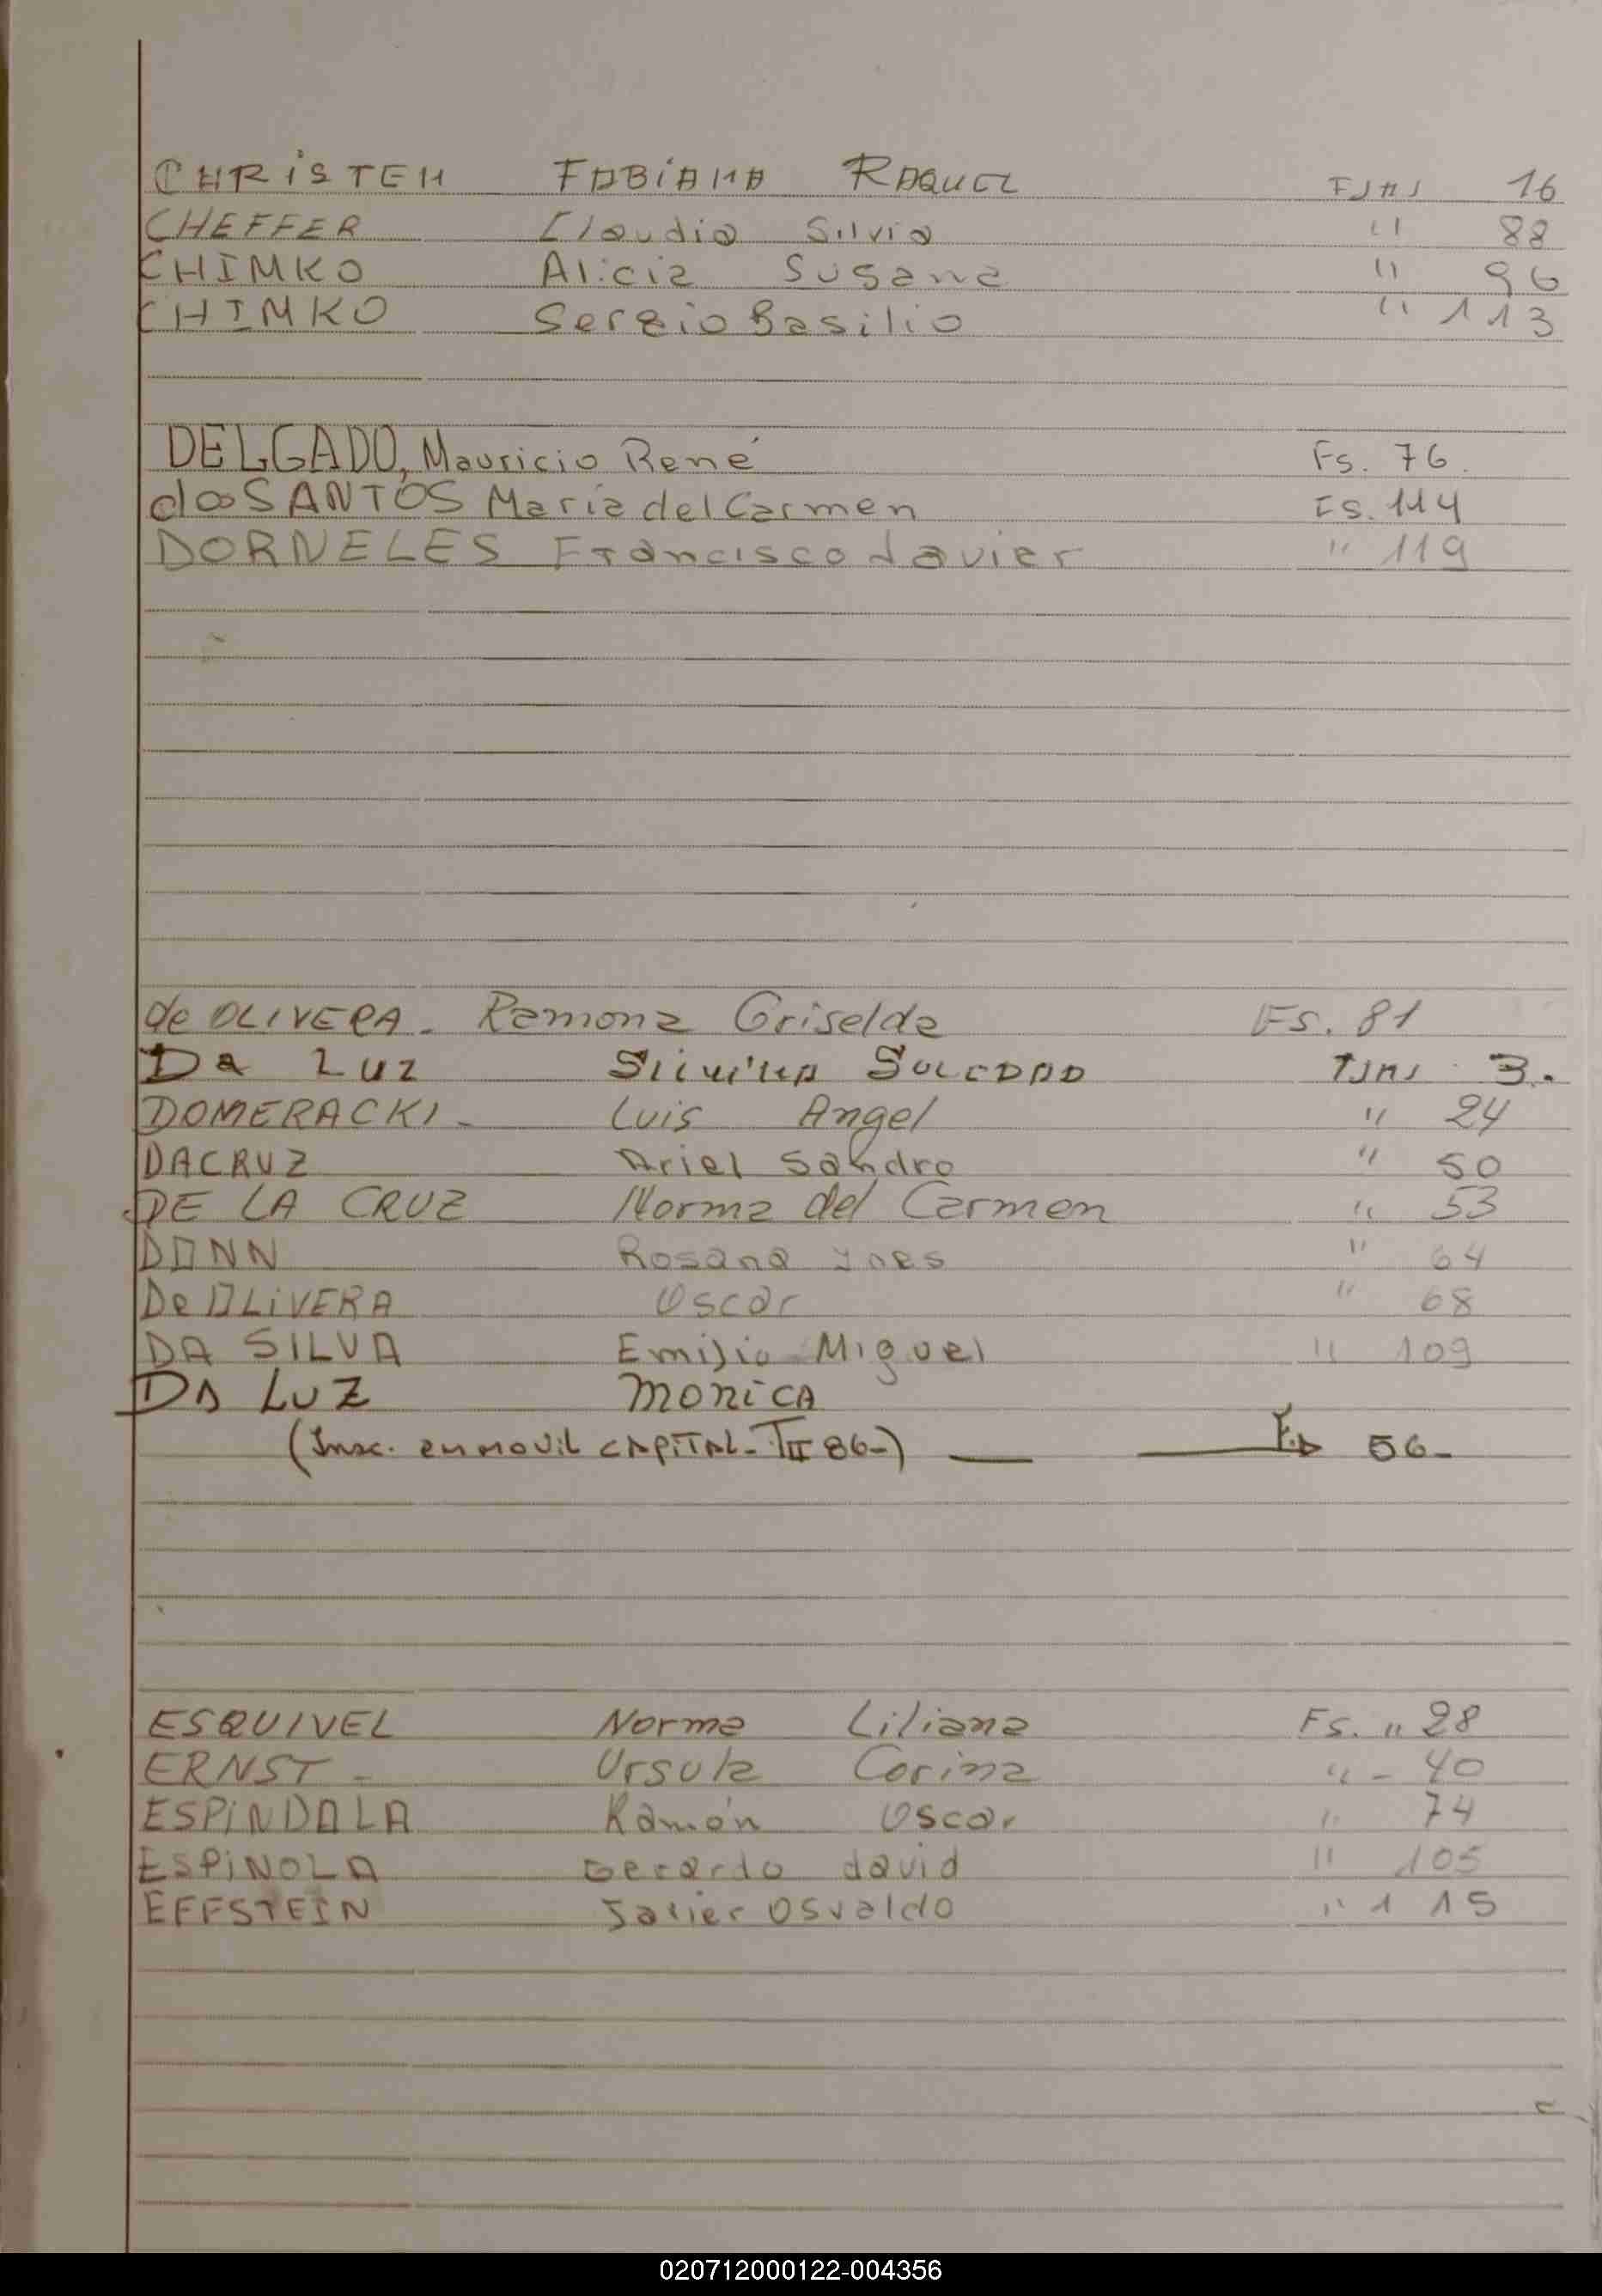 CHRISTEN FABIANA RAQUEL FJAS 16
CHEFFER Claudia Silvia " 88
CHIMKO Alicia Susana " 96
CHIMKO Sergio Basilio " 113
DELGADO, Mauricio René Fs. 76.
dosSANTOS María del Carmen Fs. 114
DORNELES Francisco Javier " 119
de OLIVERA - Ramona Griselda Fs. 81
Da Luz SOLEDAD 3.
DOMERACKI - Luis Angel " 24
DACRUZ Ariel Sandro " 50
DE LA CRUZ Norma del Carmen " 53
DONN Rosana Ines " 64
De OLIVERA Oscar " 68
DA SILVA Emilio Miguel " 109
DA LUZ MONICA
(Insc. en movil CAPITAL - T II 86-) 56-
ESQUIVEL Norma Liliana Fs. " 28
ERNST - Ursula Corina " - 40
ESPINDOLA Ramón Oscar " 74
ESPINOLA Gerardo david " 105
EFFSTEIN Javier Osvaldo " 115
020712000122-004356